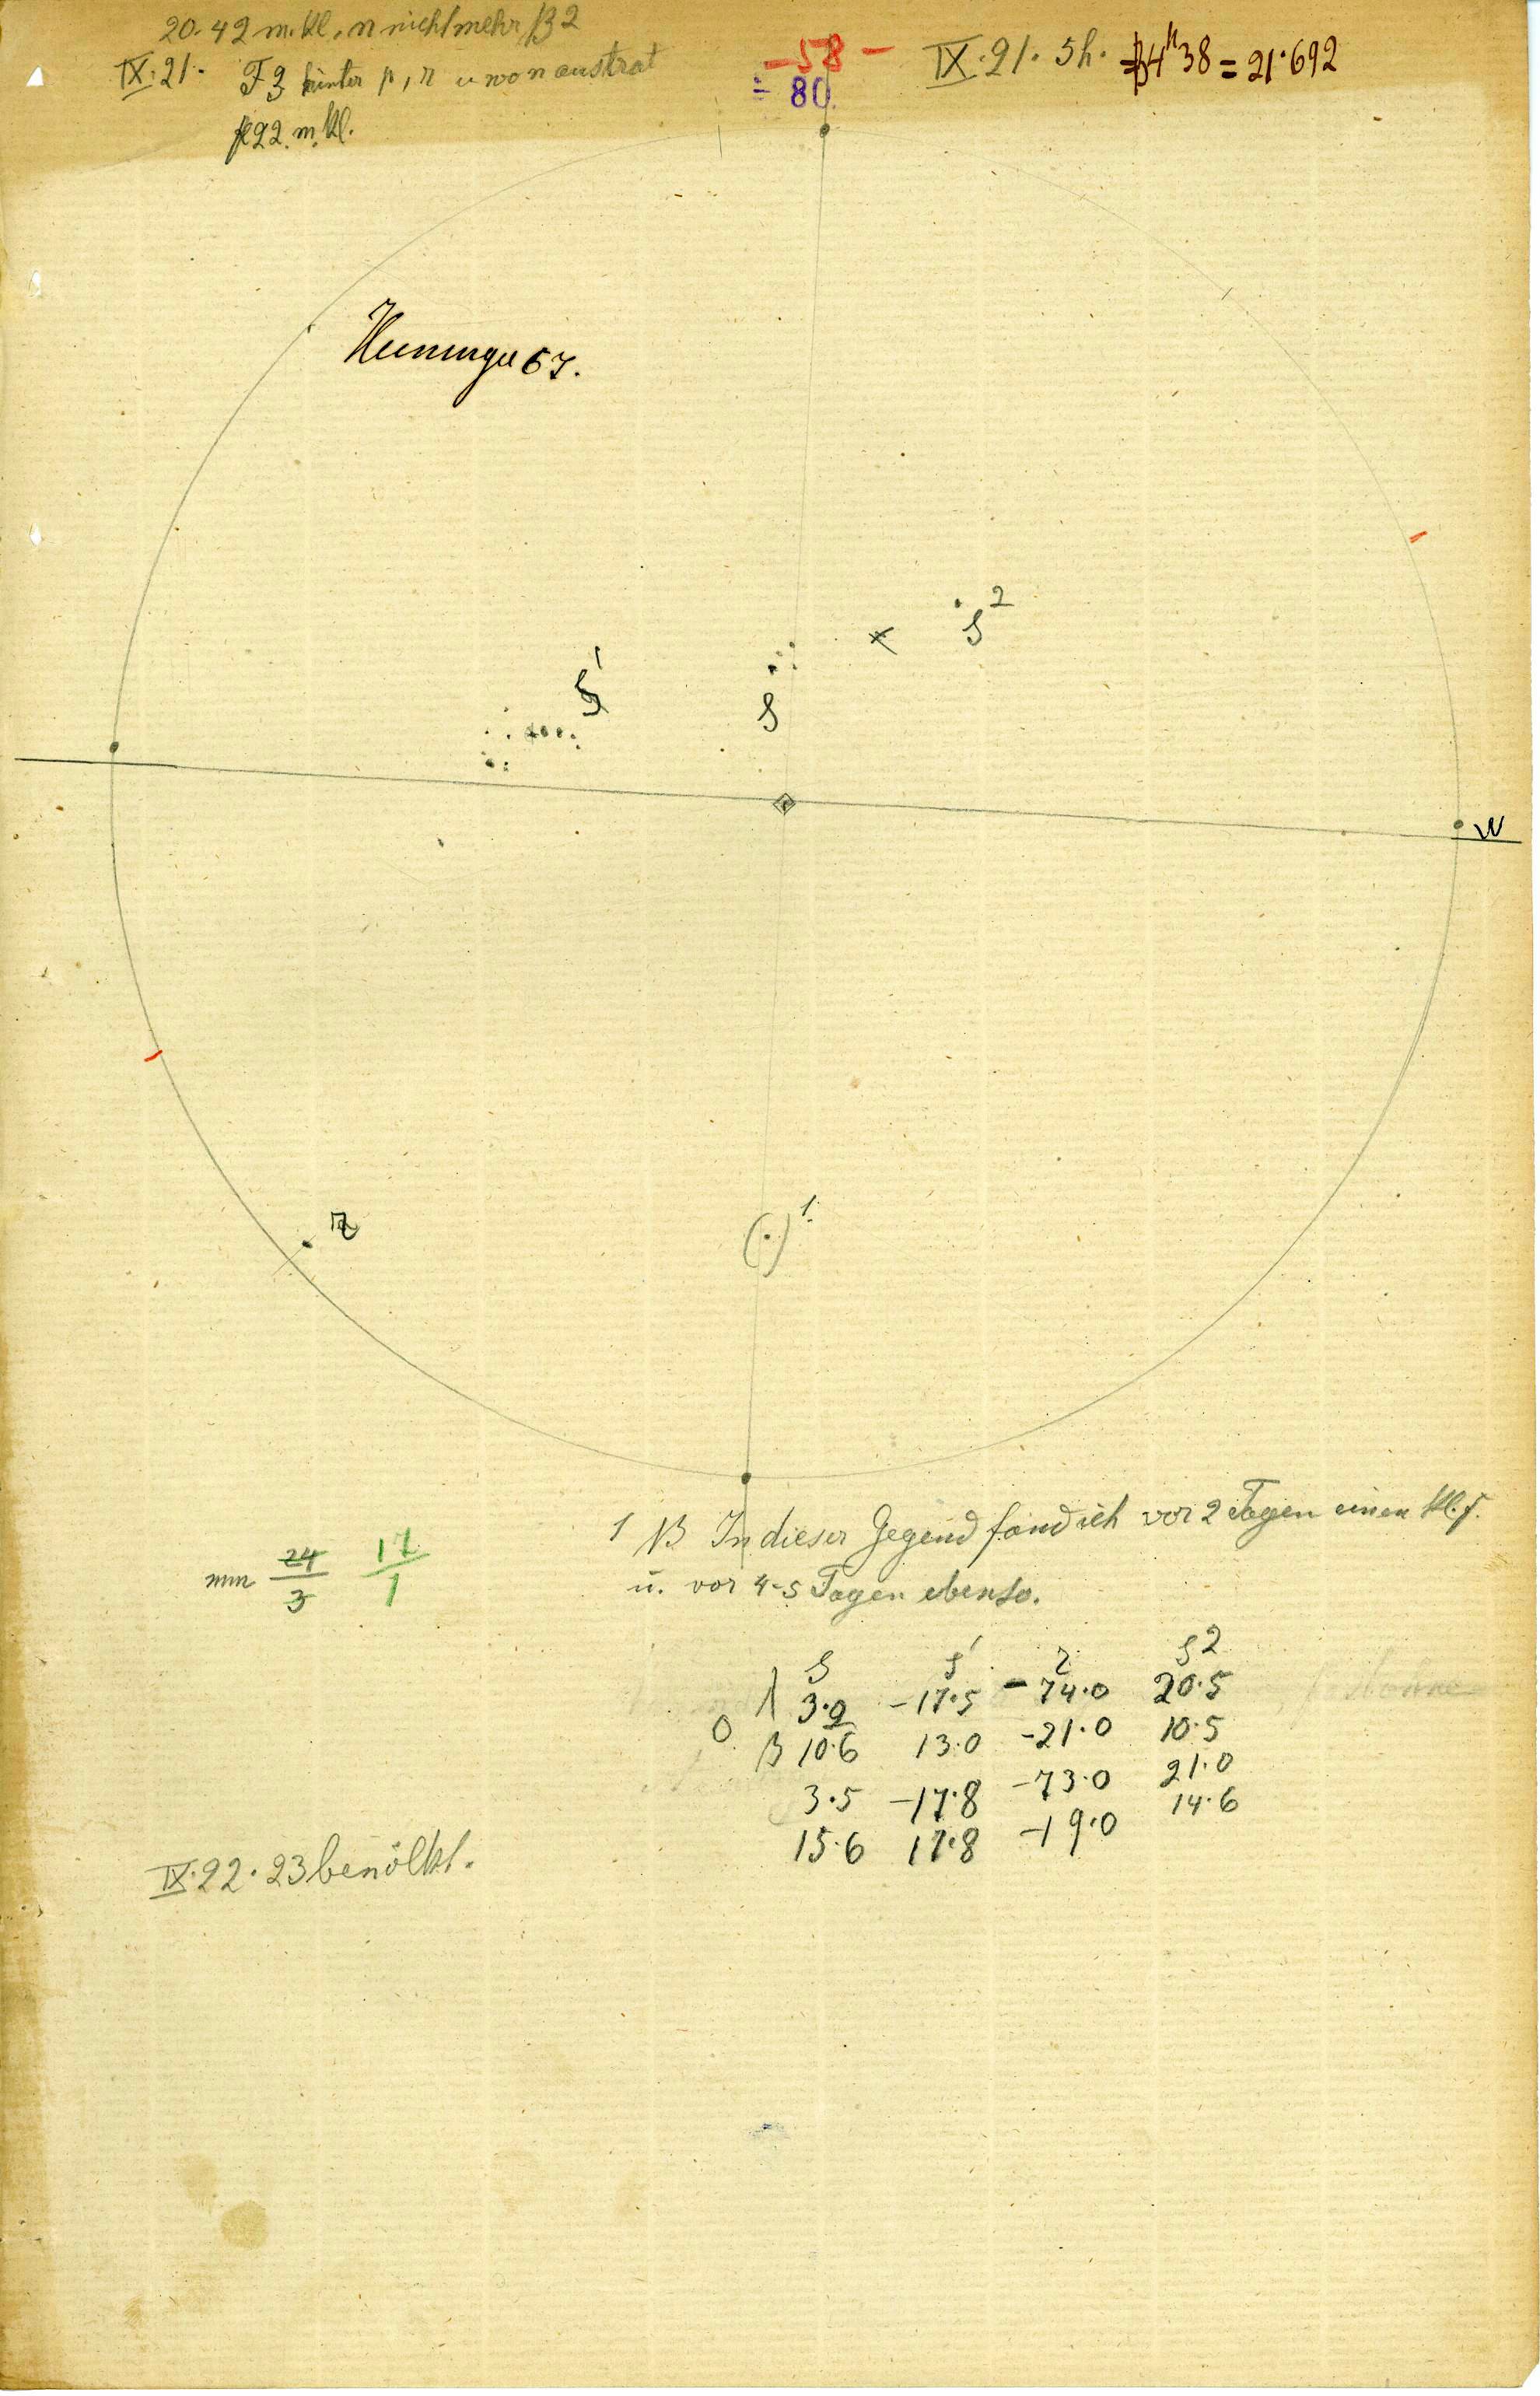 20. 42 m. kl. n nicht mehr β2
IX. 21. F3 hinter p, r u wo n austrat
22. m. kl.
-58-
= 80
IX. 21. 5h. 4h38 = 21.692
67.
s1
s
s2
W
z
(.) 1.
1 NB In dieser Gegend fand ich vor 2 Tagen einen kl. f.
u. vor 4-5 Tagen ebenso.
mm 24/3 17/1
s s' z s2
λ 3.2 -17.5 -74.0 20.5
O
β 10.6 13.0 -21.0 10.5
3.5 -17.8 -73.0 21.0
15.6 17.8 -19.0 14.6
IX. 22. 23 bewölkt.